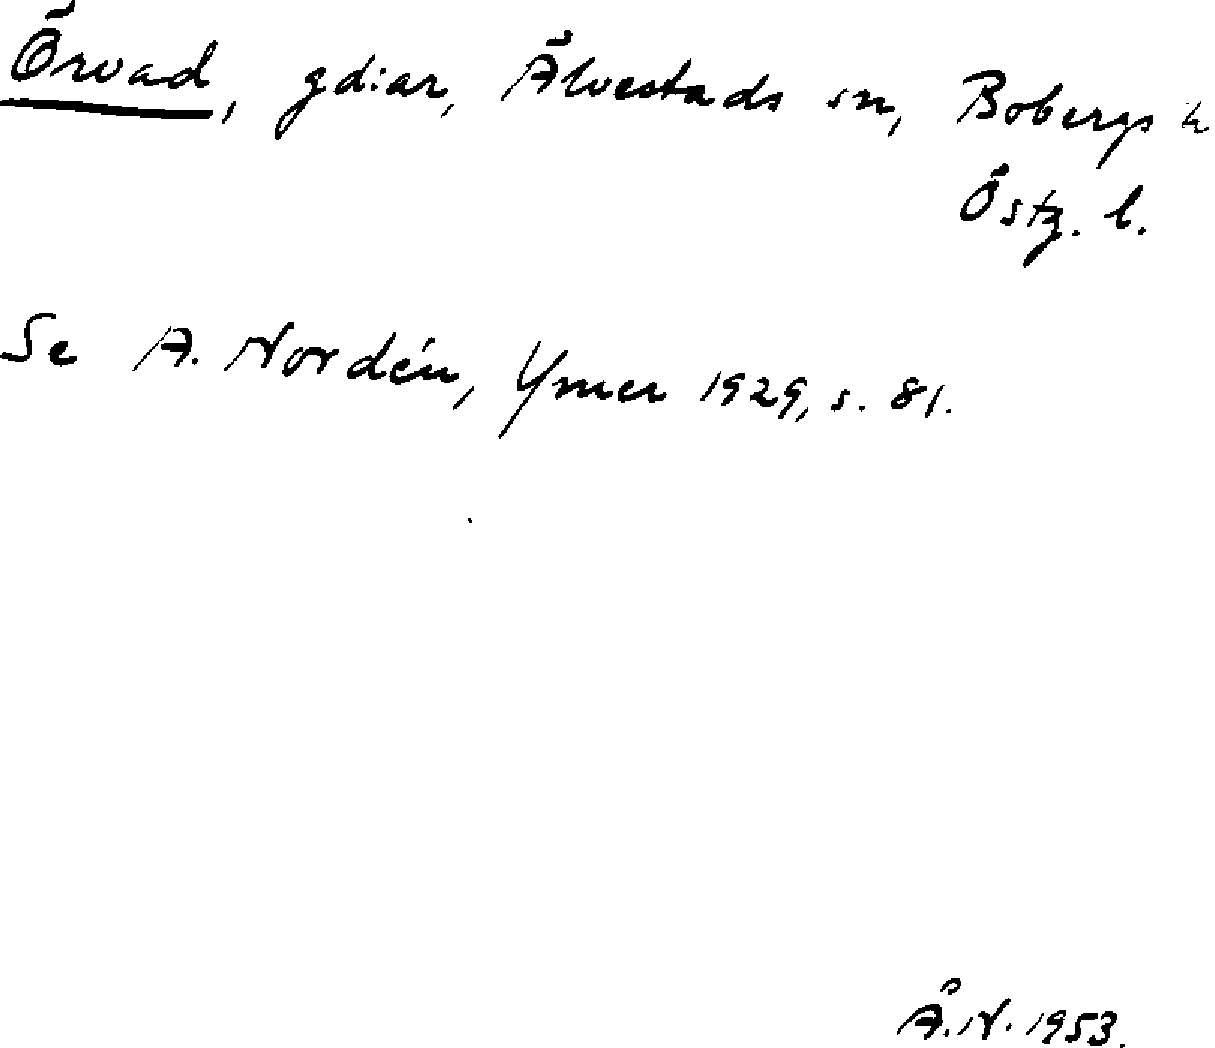 Örvad, gdiar, Älvestads sn, Bobergs h
Östg. l.
Se A. Nordén, Ymer 1929, s. 81.
Å.N. 1953.